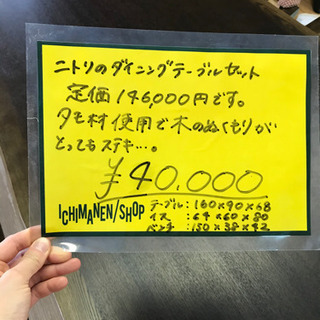 ニトリのダイニングテーブルセット
定価146,000円です。
タモ材使用で木のぬくもりが
とってもステキ…。
¥40,000
ICHIMANEN/SHOP
テーブル:160×90×68
イス:64×60×80
ベンチ:150×38×42